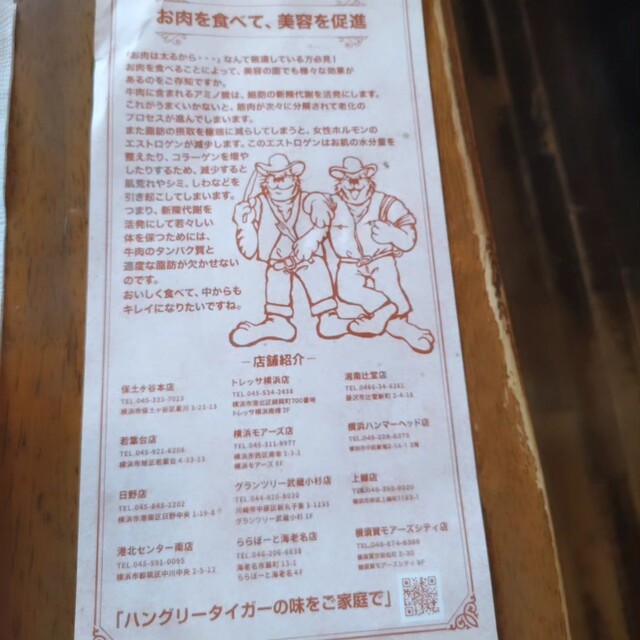 お肉を食べて、美容を促進
「お肉は太るから・・・」なんて敬遠している方必見!
お肉を食べることによって、美容の面でも様々な効果が
あるのをご存知ですか。
牛肉に含まれるアミノ酸は、細胞の新陳代謝を活発にします。
これがうまくいかないと、筋肉が次々に分解されて老化の
プロセスが進んでしまいます。
また脂肪の摂取を極端に減らしてしまうと、女性ホルモンの
エストロゲンが減少します。このエストロゲンはお肌の水分量を
整えたり、コラーゲンを増や
したりするため、減少すると
肌荒れやシミ、しわなどを
引き起こしてしまいます。
つまり、新陳代謝を
活発にして若々しい
体を保つためには、
牛肉のタンパク質と
適度な脂肪が欠かせない
のです。
おいしく食べて、中からも
キレイになりたいですね。
―店舗紹介―
保土ヶ谷本店
TEL.045-333-7023
横浜市保土ヶ谷区星川 3-23-13
トレッサ横浜店
TEL.045-534-2438
横浜市港北区師岡町700番地
トレッサ横浜南棟 2F
湘南辻堂店
藤沢市辻堂新町 2-4-18
若葉台店
TEL.045-921-6208
横浜市旭区若葉台 4-33-13
横浜モアーズ店
TEL.045-311-8977
横浜市西区南幸 1-3-1
横浜モアーズ 8F
横浜ハンマーヘッド店
日野店
横浜市港南区日野中央 1-19-8
グランツリー武蔵小杉店
TEL.044-820-8030
川崎市中原区新丸子東 3-1135
グランツリー武蔵小杉 1F
上郷店
港北センター南店
TEL.045-591-0095
横浜市都筑区中川中央 2-5-12
ららぽーと海老名店
TEL.046-206-4638
海老名市扇町 13-1
ららぽーと海老名 4F
横須賀モアーズシティ店
「ハングリータイガーの味をご家庭で」